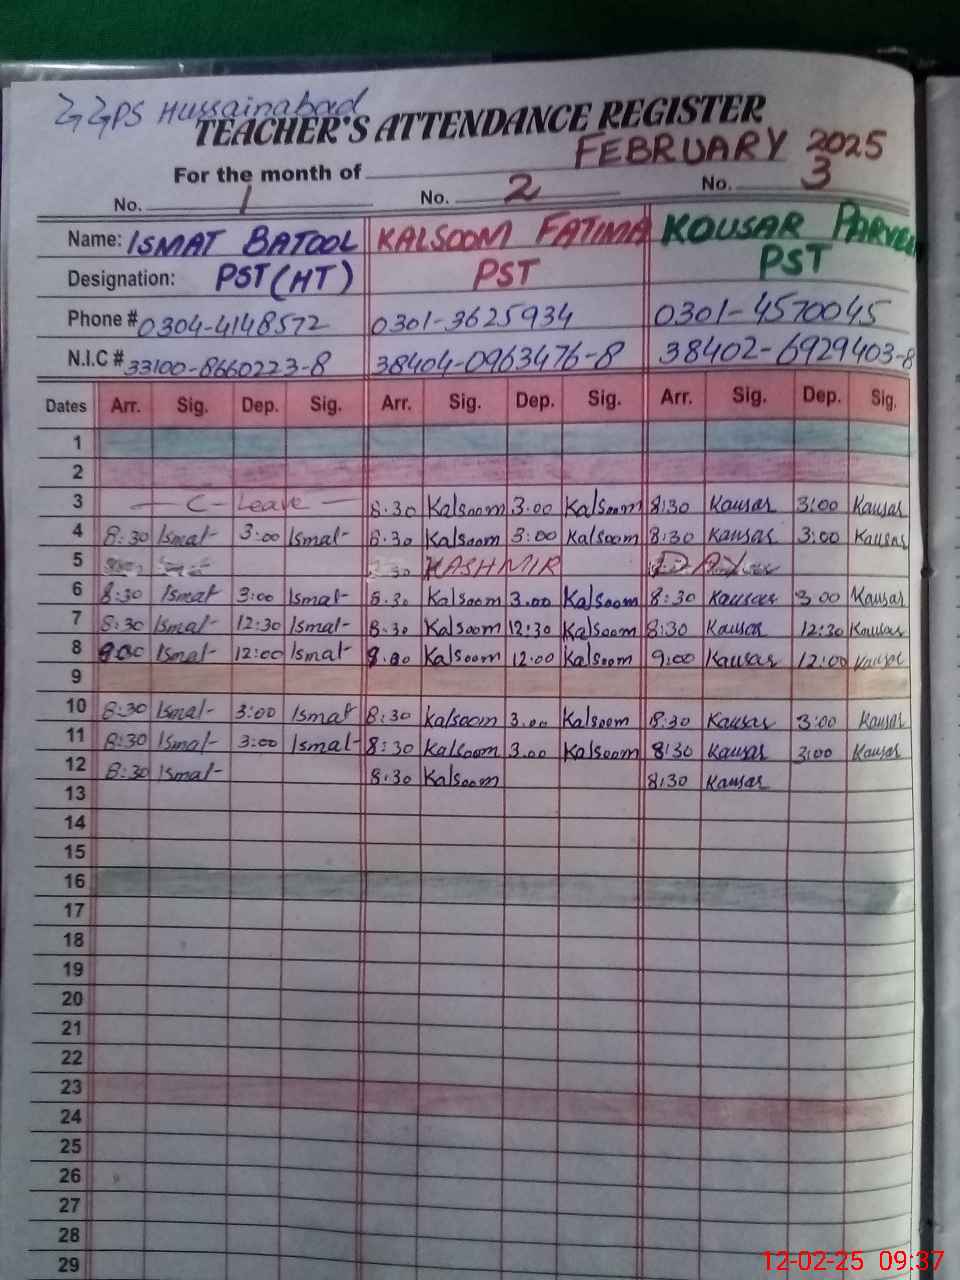 GGPS Hussainabad
TEACHER'S ATTENDANCE REGISTER
For the month of FEBRUARY 2025
No. 1 No. 2 No. 3
Name: ISMAT BATOOL KALSOOM FATIMA KOUSAR PARVEEN
Designation: PST (HT) PST PST
Phone # 0304-4148572 0301-3625934 0301-4570045
N.I.C # 33100-8660223-8 38404-0963476-8 38402-6929403-8
Dates Arr. Sig. Dep. Sig. Arr. Sig. Dep. Sig. Arr. Sig. Dep. Sig.
1
2
3 C-Leave 8.30 Kalsoom 3.00 Kalsoom 8:30 Kausar 3:00 Kausar
4 8:30 Ismat 3:00 Ismat 8.30 Kalsoom 3:00 Kalsoom 8:30 Kausar 3:00 Kausar
5 KASHMIR DAY
6 8:30 Ismat 3:00 Ismat 8.30 Kalsoom 3.00 Kalsoom 8:30 Kausar 3 00 Kausar
7 8:30 Ismat 12:30 Ismat 8.30 Kalsoom 12:30 Kalsoom 8:30 Kausar 12:30 Kausar
8 Ismat 12:00 Ismat Kalsoom 12:00 Kalsoom 9:00 Kausar 12:00 Kausar
9
10 8:30 Ismat 3:00 Ismat 8:30 Kalsoom 3.00 Kalsoom 8:30 Kausar 3:00 Kausar
11 8:30 Ismat 3:00 Ismat 8:30 Kalsoom 3.00 Kalsoom 8:30 Kausar 3:00 Kausar
12 8:30 Ismat 8:30 Kalsoom 8:30 Kausar
13
14
15
16
17
18
19
20
21
22
23
24
25
26
27
28
29
12-02-25 09:37